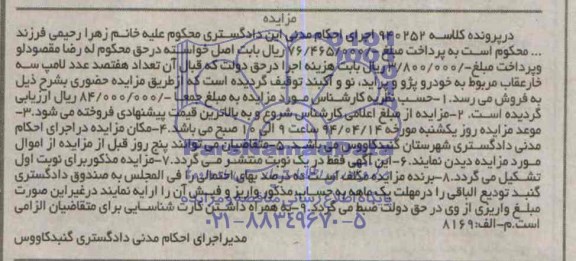 مزایده
درپرونده کلاسه ۹۴۰۲۵۲ اجرای احکام مدنی این دادگستری محکوم علیه خانم زهرا رحیمی فرزند
... محکوم است به پرداخت مبلغ ۷۶/۴۶۵/۰۰۰/- ریال بابت اصل خواسته درحق محکوم له رضا مقصودلو
وپرداخت مبلغ ۳/۸۰۰/۰۰۰/- ریال بابت هزینه اجرا درحق دولت که قبال آن تعداد هفتصد عدد لامپ سه
خارعقاب مربوط به خودرو پژو و پراید، نو و آکبند توقیف گردیده است که ازطریق مزایده حضوری بشرح ذیل
به فروش می رسد.۱-حسب نظریه کارشناس مورد مزایده به مبلغ جمعا -/۸۴/۰۰۰/۰۰۰ ریال ارزیابی
گردیده است. ۲-مزایده از مبلغ اعلامی کارشناس شروع و به بالاترین قیمت پیشنهادی فروخته می شود.۳-
موعد مزایده روز یکشنبه مورخه ۹۴/۰۴/۱۴ ساعت ۹ الی ۱۰ صبح می باشد.۴-مکان مزایده دراجرای احکام
مدنی دادگستری شهرستان گنبدکاووس می باشد.۵-متقاضیان می توانند پنج روز قبل از مزایده از اموال
مورد مزایده دیدن نمایند.۶-این آگهی فقط در یک نوبت منتشر می گردد.۷-مزایده مذکور برای نوبت اول
تشکیل می گردد.۸-برنده مزایده مکلف است ده درصد بهای احتمالی را فی المجلس به صندوق دادگستری
گنبد تودیع الباقی را درمهلت یک ماهه به حساب مذکور واریز و فیش آن را ارایه نمایند درغیراین صورت
مبلغ واریزی از وی در حق دولت ضبط می گردد.۹-به همراه داشتن کارت شناسایی برای متقاضیان الزامی
است.م-الف:۸۱۶۹
مدیراجرای احکام مدنی دادگستری گنبدکاووس
۰۲۱-۸۸۳۴۹۶۷۰-۵